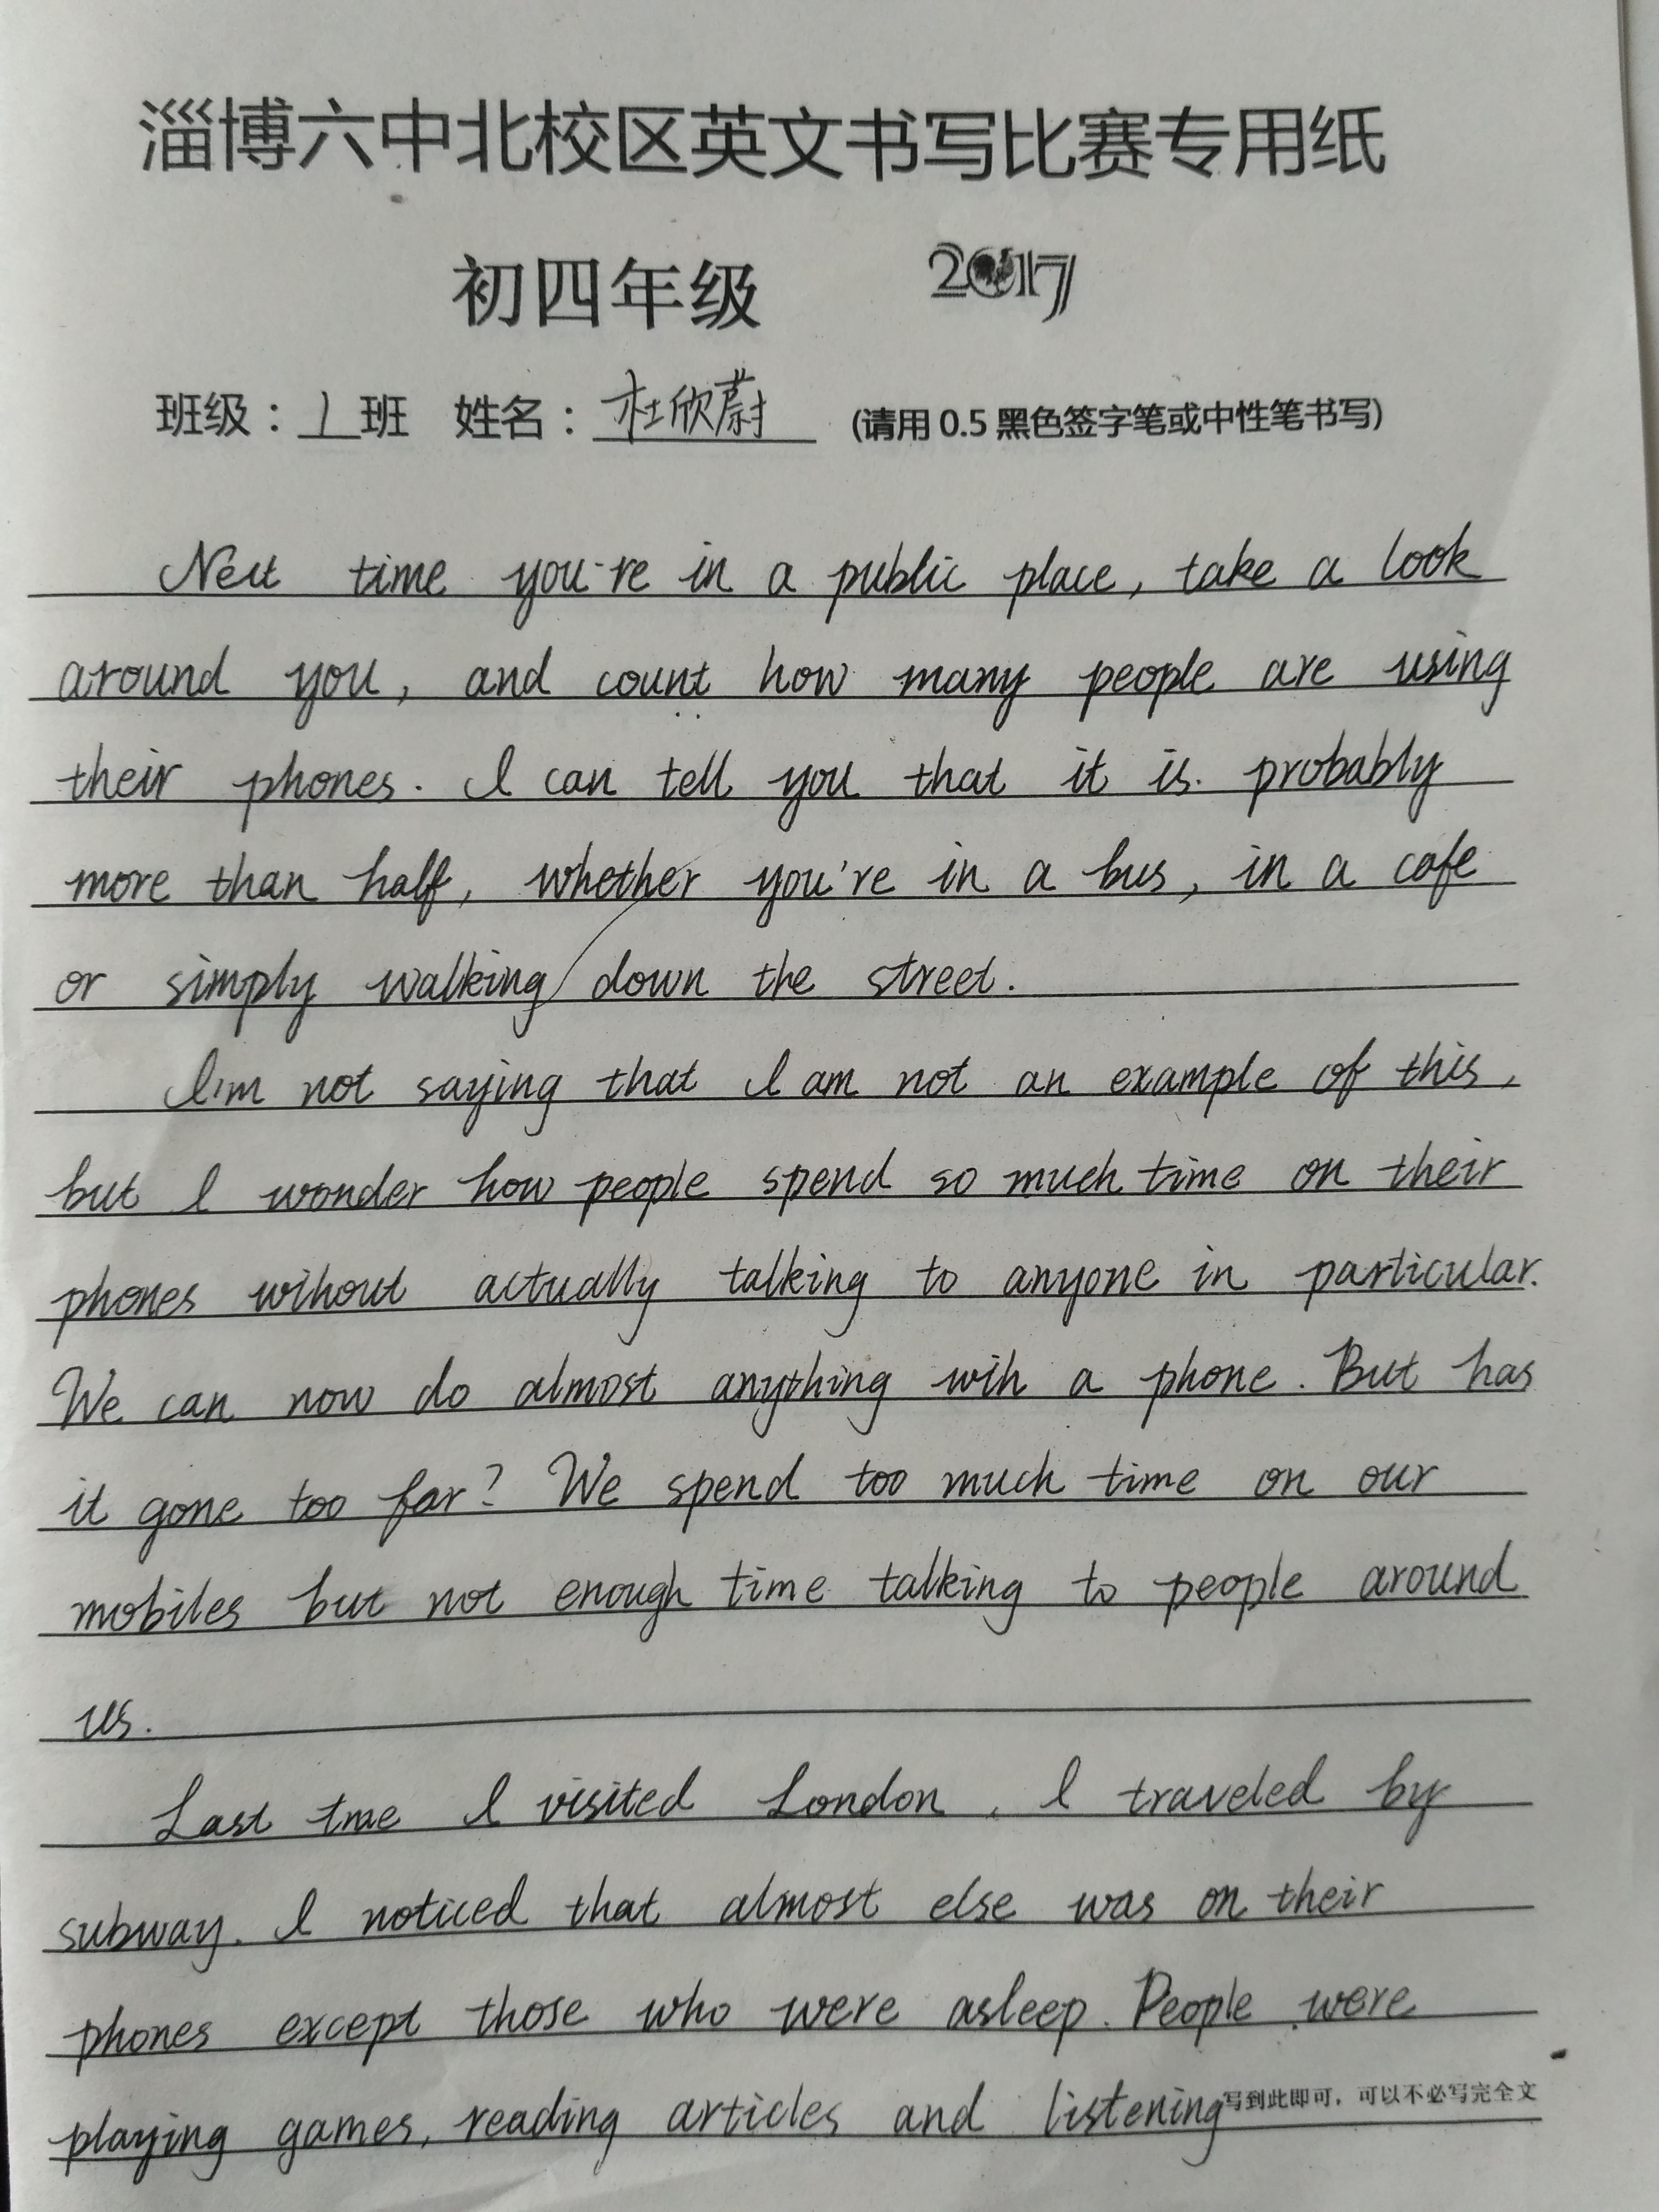 淄博六中北校区英文书写比赛专用纸
初四年级 2017
班级：1班 姓名：杜欣蔚 (请用0.5黑色签字笔或中性笔书写)
Next time you're in a public place, take a look
around you, and count how many people are using
their phones. I can tell you that it is probably
more than half, whether you're in a bus, in a cafe
or simply walking down the street.
I'm not saying that I am not an example of this,
but I wonder how people spend so much time on their
phones wihout actually talking to anyone in particular.
We can now do almost anything wih a phone. But has
it gone too far? We spend too much time on our
mobiles but not enough time talking to people around
us.
Last tme I visited London, I traveled by
subway. I noticed that almost else was on their
phones except those who were asleep. People were
playing games, reading articles and listening
写到此即可，可以不必写完全文